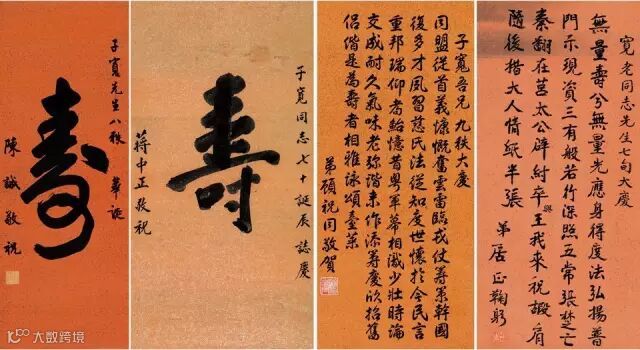 子寬先生八秩 華誕
壽
陳誠敬祝
子寬同志七十誕辰誌慶
壽
蔣中正敬祝
子寬吾兄 九秩大慶
同盟從首義慷慨奮雲雷臨戎仗籌策幹國
復多才風習慈民法從知度世懷於今民言
重邦瑞仰耆鮐憶昔粵軍幕相識少壯時論
交成耐久氣味老彌諧來作添籌慶欣招舊
侶偕是為壽者相雅詠頌臺萊
弟顧祝同敬賀
寬老同志先生七旬大慶
無量壽兮無量光應身得度法弘揚普
門示現資三有般若行深照五常張楚亡
秦翻在莒太公辟紂卒興王我來祝嘏肩
隨後楷大人情紙半張
弟居正鞠躬
大数跨境